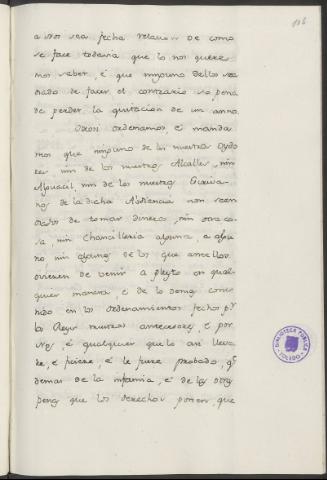 a Nos sea fecha relacion de como
se face todavia que lo nos quere
mos saber, é que ninguno dellos sea
osado de facer el contrario so pena
de perder la quitacion de un anno.
Otrosi ordenamos é manda
mos que ninguno de los nuestros Oydo
res nin de los nuestros Alcalles, nin
Alguacil, nin de los nuestros Escriva
nos de la dicha Abdiencia non sean
osados de tomar dineros, nin otra co
sa, nin Chancilleria alguna, a algu
no, nin algunos de los que antellos
ovieren de venir a pleyto en qual
quier manera, é de lo demas conte
nido en los ordenamientos fechos por
los Reyes nuestros antecesores, é por
Nos, é qualquier que lo asi lleva
re, é pidiere, é le fuere probado, que
demas de la infamia, é de las otras
penas que los derechos ponen, que
BIBLIOTECA PUBLICA
TOLEDO